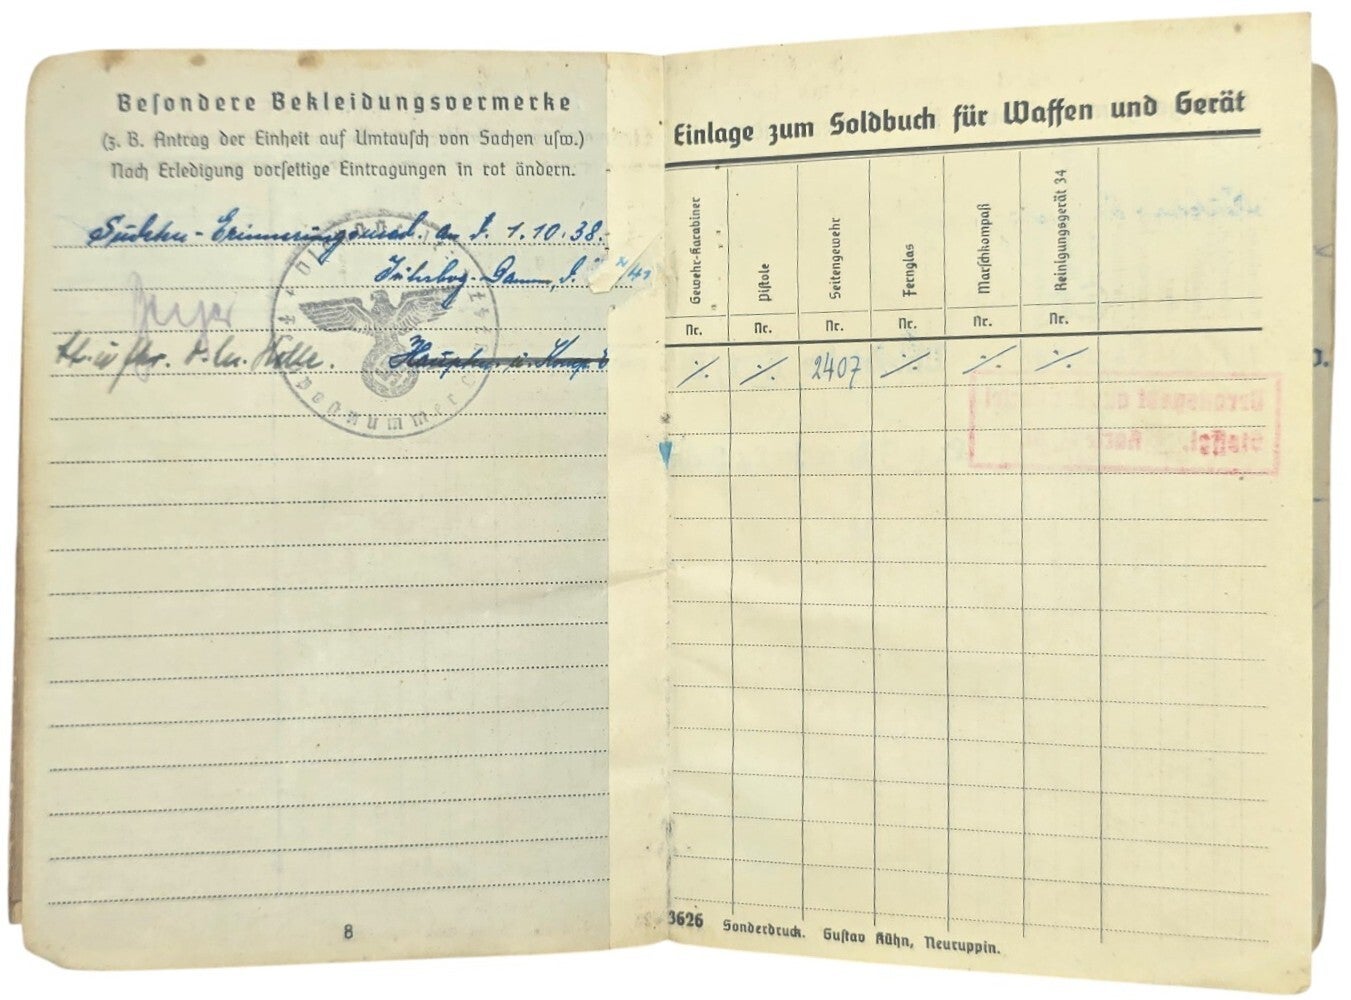 Besondere Bekleidungsvermerke
(z. B. Antrag der Einheit auf Umtausch von Sachen usw.)
Nach Erledigung vorseitige Eintragungen in rot ändern.
Sudeten-Erinnerungsmed. 1.10.38.
Jüterbog-Damm, /41
Berger
u.
Dienst
Feldpostnummer
8
Einlage zum Soldbuch für Waffen und Gerät
Gewehr-Karabiner
Pistole
Seitengewehr
Fernglas
Marschkompaß
Reinigungsgerät 34
Nr. Nr. Nr. Nr. Nr. Nr.
./. ./. 2407 ./. ./. ./.
3626 Sonderdruck. Gustav Kühn, Neuruppin.